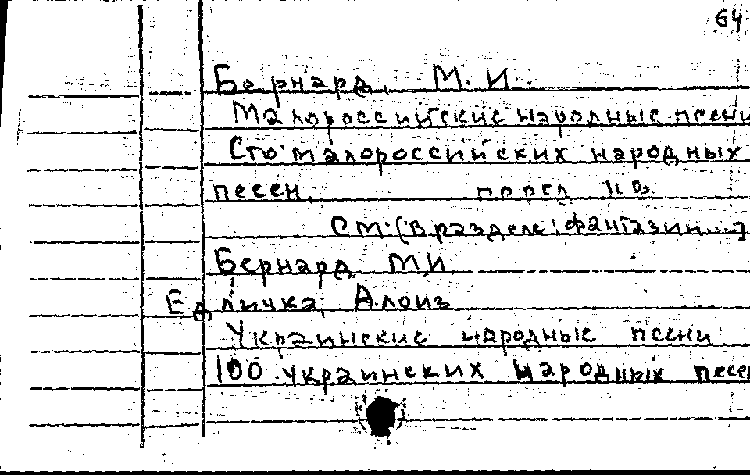 64
Бернард, М. И.
Малороссийские народные песни
Сто малороссийских народных
песен.
См: (в разделе: фантазии...)
Бернард М.И.
Едличка, Алоиз
Украинские народные песни
100 украинских народных песен